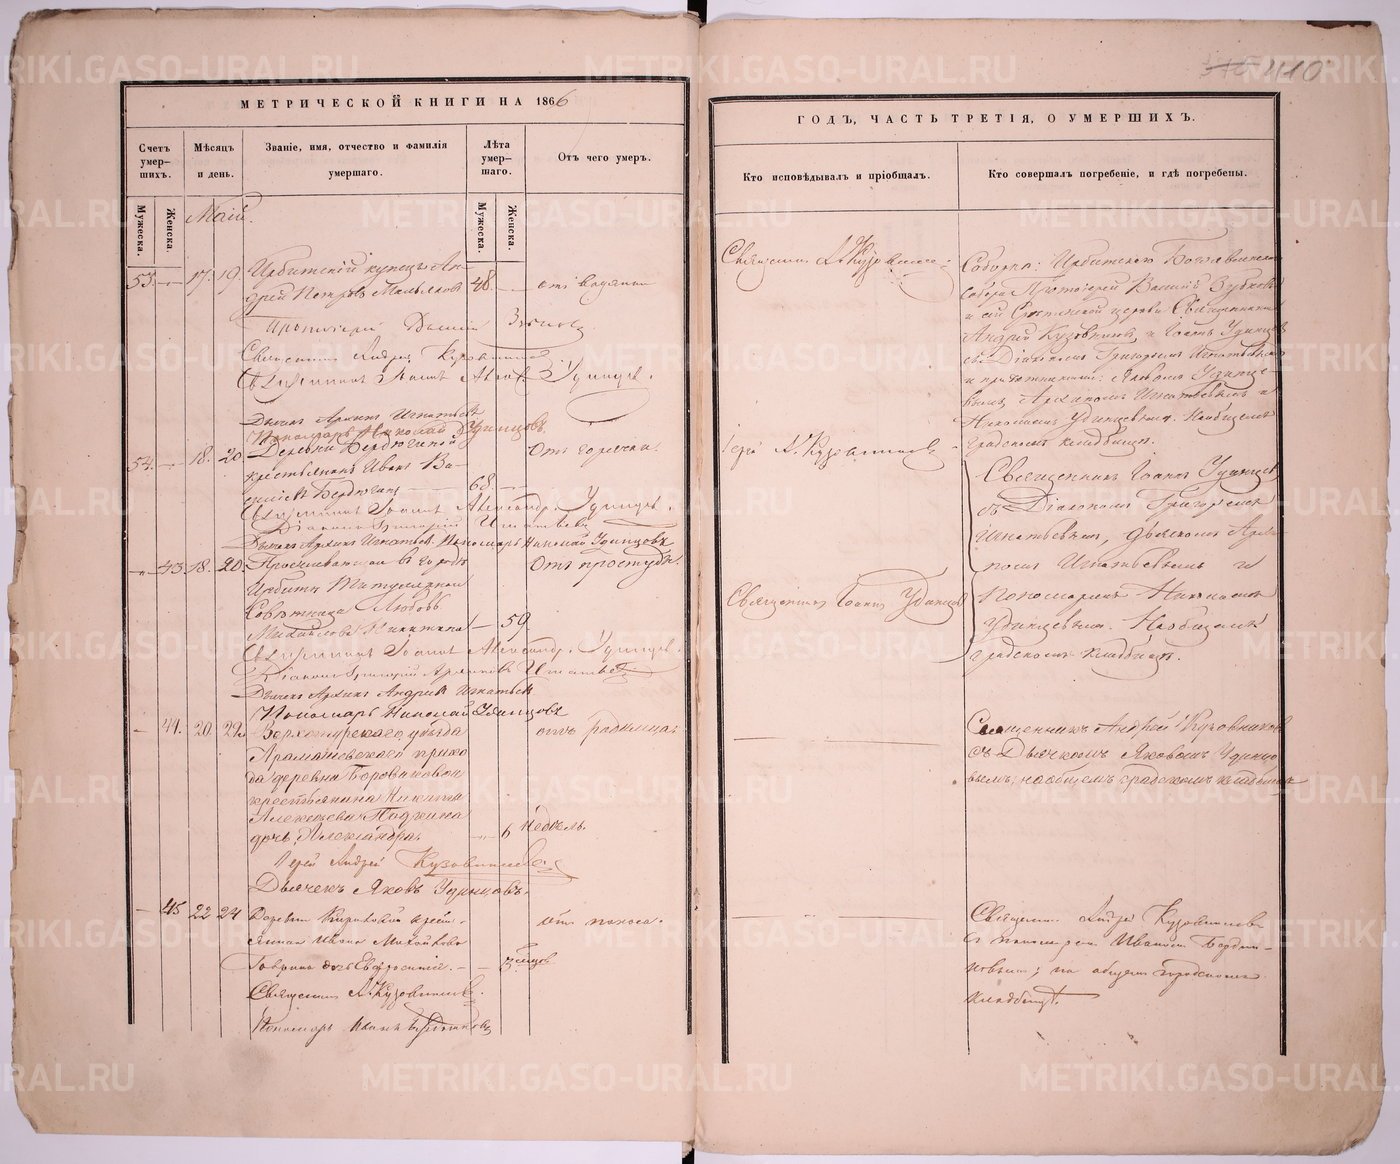 МЕТРИЧЕСКОЙ КНИГИ НА 1866
Счетъ умер-шихъ.
Мѣсяцъ и день.
Званіе, имя, отчество и фамилія умершаго.
Лѣта умер-шаго.
Отъ чего умеръ.
Мужеска.
Женска.
Маій.
Мужеска.
Женска.
53. 17. 19. Ирбитскій купецъ Ан-
дрей Петровъ 48. отъ водянки
Протоіерей
Священникъ Андрей Кузовниковъ
Священникъ Іоаннъ Удинцевъ.
Дьячекъ Архипъ Игнатьевъ
Пономарь Николай Удинцовъ.
54. 18. 20 Деревни Бердюгиной Отъ горячки.
крестьянинъ Иванъ Ва-
силіевъ Бердюгинъ 68.
Священникъ Іоаннъ Александр. Удинцевъ.
Діаконъ Григорій Игнатьевъ
Дьячекъ Архипъ Игнатьевъ. Пономарь Николай Удинцовъ
43. 18. 20. Проживающая въ городѣ Отъ простуды.
Ирбити Титулярная
Совѣтница Любовь
Михайлова Никитина 59.
Священникъ Іоаннъ Александр. Удинцевъ.
Діаконъ Григорій Игнатьевъ
Дьячекъ Архипъ Андреевъ Игнатьевъ
Пономарь Николай Удинцовъ
44. 20. 22. Верхотурскаго уѣзда отъ родимца.
Арамашевскаго прихо
да деревни Боровиковой
крестьянина Никиты
Алексѣева
дочь Александра. 6 недѣль.
Іерей Андрей Кузовниковъ
Дьячекъ Яковъ Удинцовъ.
45 22 24 Деревни Кириловой крест- отъ поноса.
Ивана
Гаврина дочь Евфросинія. 3 мѣсяцов
Священникъ А. Кузовниковъ.
Пономарь Иванъ
410
ГОДЪ, ЧАСТЬ ТРЕТІЯ, О УМЕРШИХЪ.
Кто исповѣдывалъ и пріобщалъ.
Кто совершалъ погребеніе, и гдѣ погребены.
Священникъ А. Кузовников.
Соборнѣ: Ирбитскаго Богоявленскаго
собора Протоіерей Василій Зубковъ
и сей церкви Священники
Андрей Кузовниковъ и Іоаннъ Удинцевъ
съ Діакономъ Григоріемъ Игнатьевымъ
и причетниками: Яковомъ Удинце-
вымъ, Архипомъ Игнатьевымъ и
Николаемъ Удинцевымъ. На общемъ
градскомъ кладбищѣ.
Іерей А. Кузовниковъ
Священникъ Іоаннъ Удинцевъ
съ Діакономъ Григоріемъ
Игнатьевымъ, дьячкомъ Архи-
помъ Игнатьевымъ и
пономаремъ Николаемъ
Удинцевымъ. На общемъ
градскомъ кладбищѣ.
Священникъ Іоаннъ Удинцевъ
Священникъ Андрей Кузовниковъ
съ Дьячкомъ Яковомъ Удинцо
вымъ, на общемъ градскомъ кладбищѣ
Священникъ Андрей Кузовниковъ
съ пономаремъ Иваномъ
на общемъ городскомъ
кладбищѣ.
METRIKI.GASO-URAL.RU